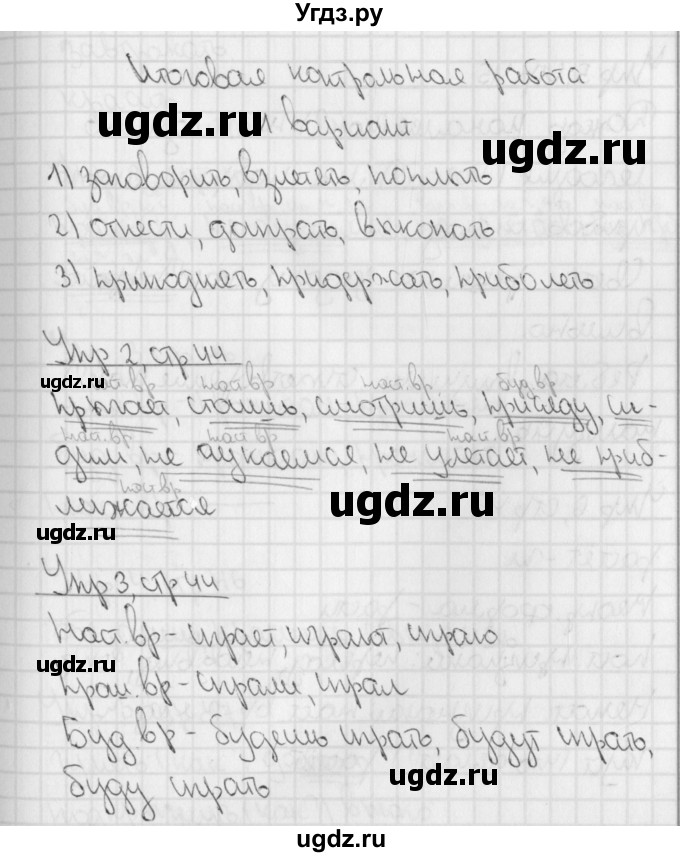 Угдз.ру
Итоговая контрольная работа
ugdz.ru 1 вариант ugdz.ru
1) заговорить, взлететь, поплыть
2) отнести, доиграть, выкопать
3) приподнять, придержать, приболеть
Упр 2, стр 44
ugdz.ru
наст. вр наст. вр наст. вр буд. вр
стоишь, смотришь, приеду, си-
наст. вр наст. вр наст. вр
дим, не аукаемся, не улетает, не приб-
наст. вр
лижается
ugdz.ru ugdz.ru
Упр 3, стр 44
Наст. вр - играет, играют, играю
ugdz.ru ugdz.ru
Прош. вр - играли, играл
Буд вр - будешь играть, будут играть,
буду играть
ugdz.ru ugdz.ru
ugdz.ru